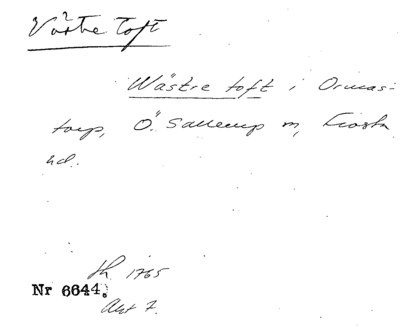 Västre toft
Wästre toft i Ormas-
torp, Ö. Sallerup sn, Frosta
hd.
Sk. 1765
Nr 6644.
Akt 7.